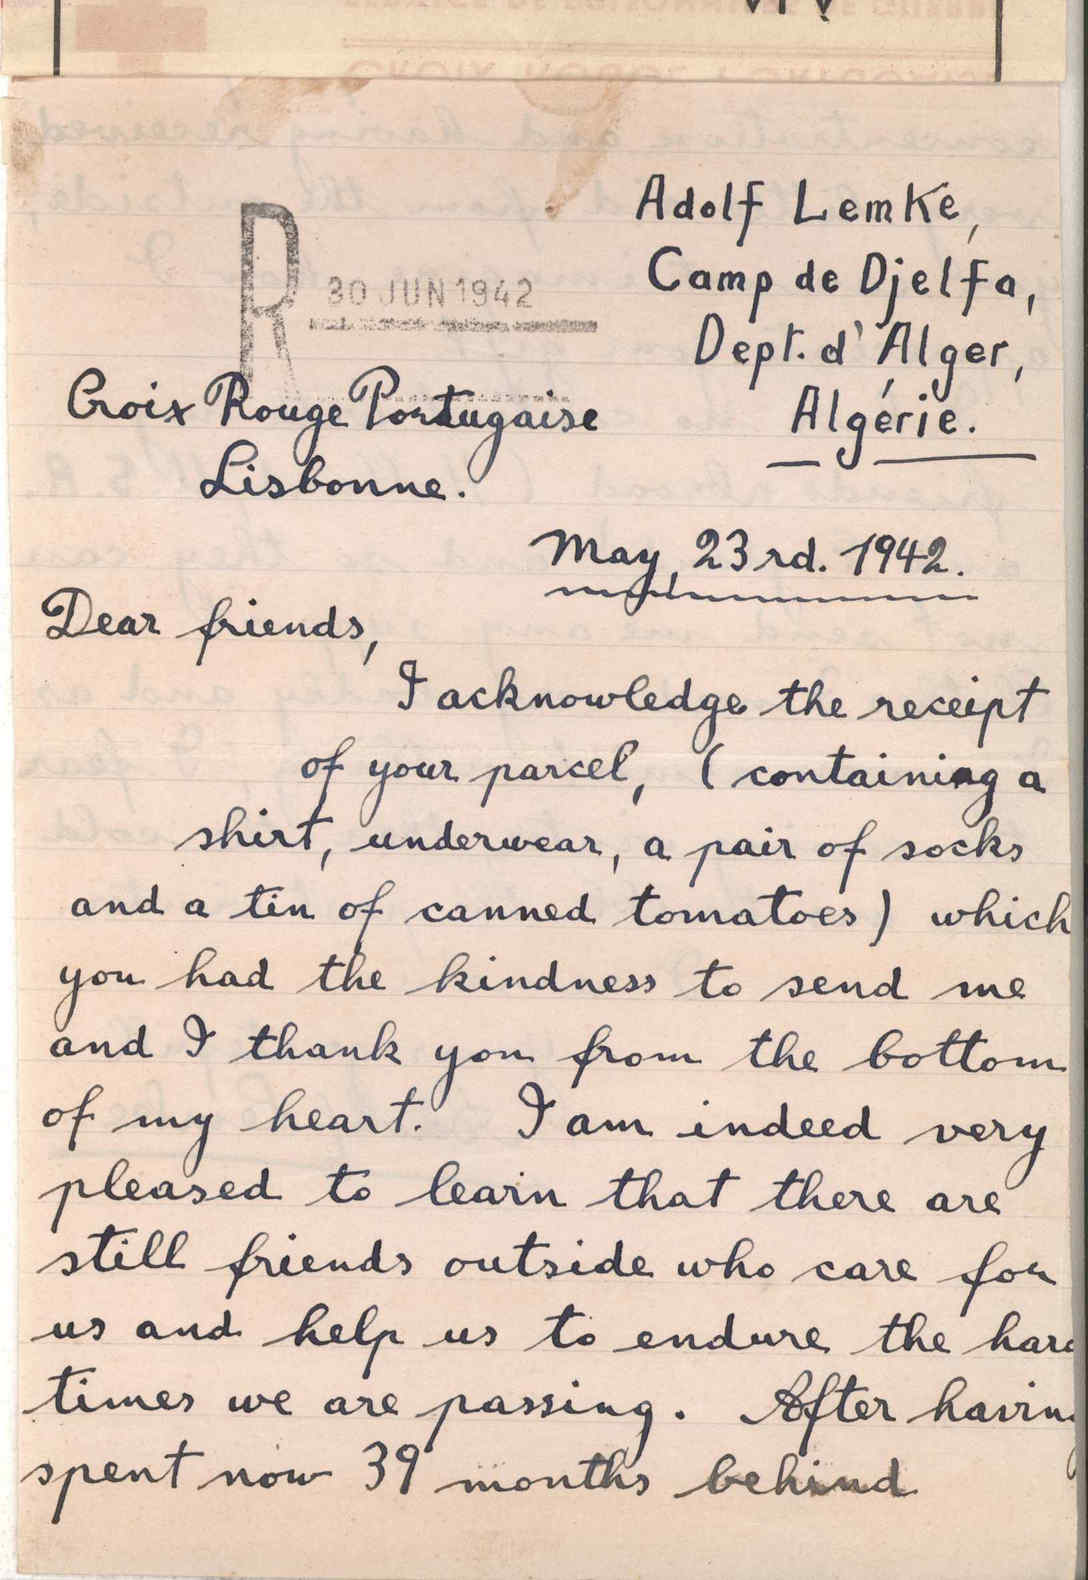 Adolf Lemke,
Camp de Djelfa,
Dept. d'Alger,
Algérie.
R 30 JUN 1942
Croix Rouge Portugaise
Lisbonne.
May 23rd. 1942.
Dear friends,
I acknowledge the receipt
of your parcel, (containing a
shirt, underwear, a pair of socks
and a tin of canned tomatoes) which
you had the kindness to send me
and I thank you from the bottom
of my heart. I am indeed very
pleased to learn that there are
still friends outside who care for
us and help us to endure the hard
times we are passing. After having
spent now 39 months behind